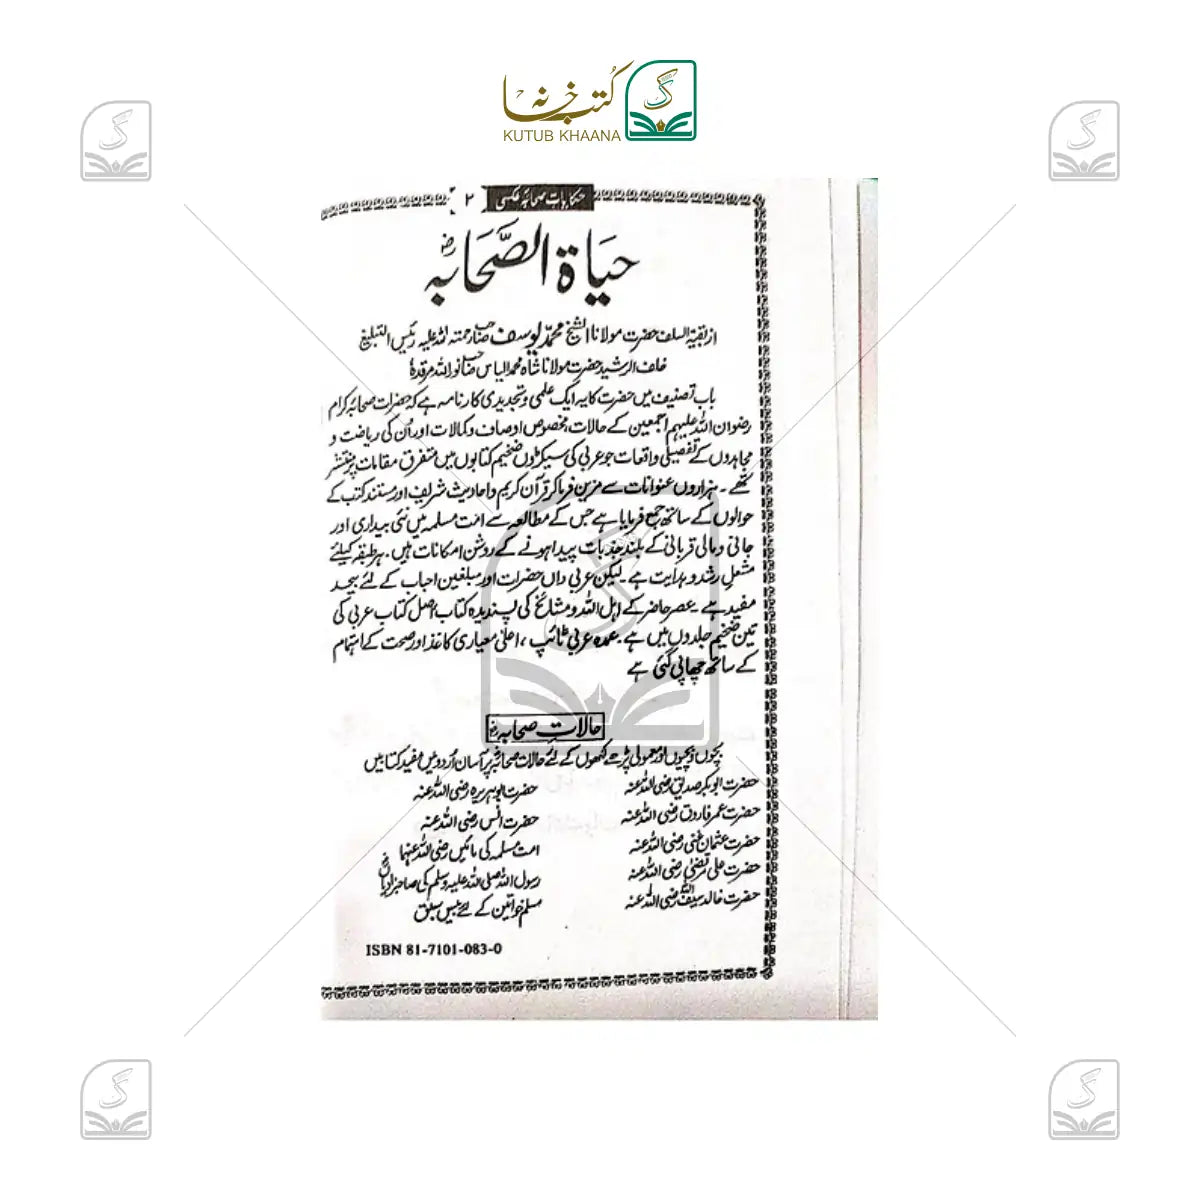 کتب خانہ
KUTUB KHAANA
حکایات صحابہ عکسی ۲
حیَاۃ الصَّحَابہ رض
از بقیۃ السلف حضرت مولانا الشیخ محمد یوسف صاحب رحمتہ اللہ علیہ رئیس التبلیغ
خلف الرشید حضرت مولانا شاہ محمد الیاس صاحب نور اللہ مرقدہٗ
باب تصنیف میں حضرت کا یہ ایک علمی و تجدیدی کارنامہ ہے کہ حضرات صحابہ کرام
رضوان اللہ علیہم اجمعین کے حالات، مخصوص اوصاف و کمالات اور اُن کی ریاضت و
مجاہدوں کے تفصیلی واقعات جو عربی کی سیکڑوں ضخیم کتابوں میں متفرق مقامات پر منتشر
تھے۔ ہزاروں عنوانات سے مزین فرما کر قرآن کریم و احادیث شریف اور مستند کتب کے
حوالوں کے ساتھ جمع فرمایا ہے جس کے مطالعہ سے امت مسلمہ میں نئی بیداری اور
جانی و مالی قربانی کے بلند جذبات پیدا ہونے کے روشن امکانات ہیں۔ ہر طبقہ کیلئے
مشعل رشد و ہدایت ہے۔ لیکن عربی داں حضرات اور مبلغین احباب کے لئے بیحد
مفید ہے۔ عصر حاضر کے اہل اللہ و مشائخ کی پسندیدہ کتاب اصل کتاب عربی کی
تین ضخیم جلدوں میں ہے۔ عمدہ عربی ٹائپ، اعلیٰ معیاری کاغذ اور صحت کے اہتمام
کے ساتھ چھاپی گئی ہے
حالاتِ صحابہ رض
بچوں و بچیوں اور معمولی پڑھے لکھوں کے لئے حالات صحابہ پر آسان اُردو میں مفید کتابیں
حضرت ابو بکر صدیق رضی اللہ عنہ
حضرت عمر فاروق رضی اللہ عنہ
حضرت عثمان غنی رضی اللہ عنہ
حضرت علی مرتضیٰ رضی اللہ عنہ
حضرت خالد سیف اللہ رضی اللہ عنہ
حضرت ابوہریرہ رضی اللہ عنہ
حضرت انس رضی اللہ عنہ
امت مسلمہ کی مائیں رضی اللہ عنہا
رسول اللہ صلی اللہ علیہ وسلم کی صاحبزادیاں
مسلم خواتین کے لئے بیس سبق
ISBN 81-7101-083-0